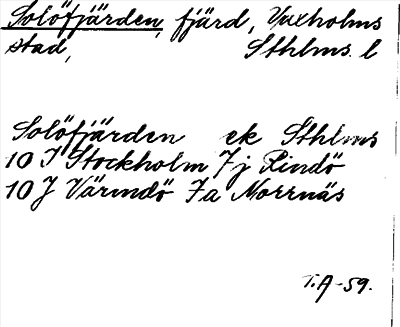 Solöfjärden, fjärd, Vaxholms
stad, Sthlms. l
Solöfjärden ek Sthlms
10 I Stockholm 7j Rindö
10 J Värmdö 7a Norrnäs
T.A-59.